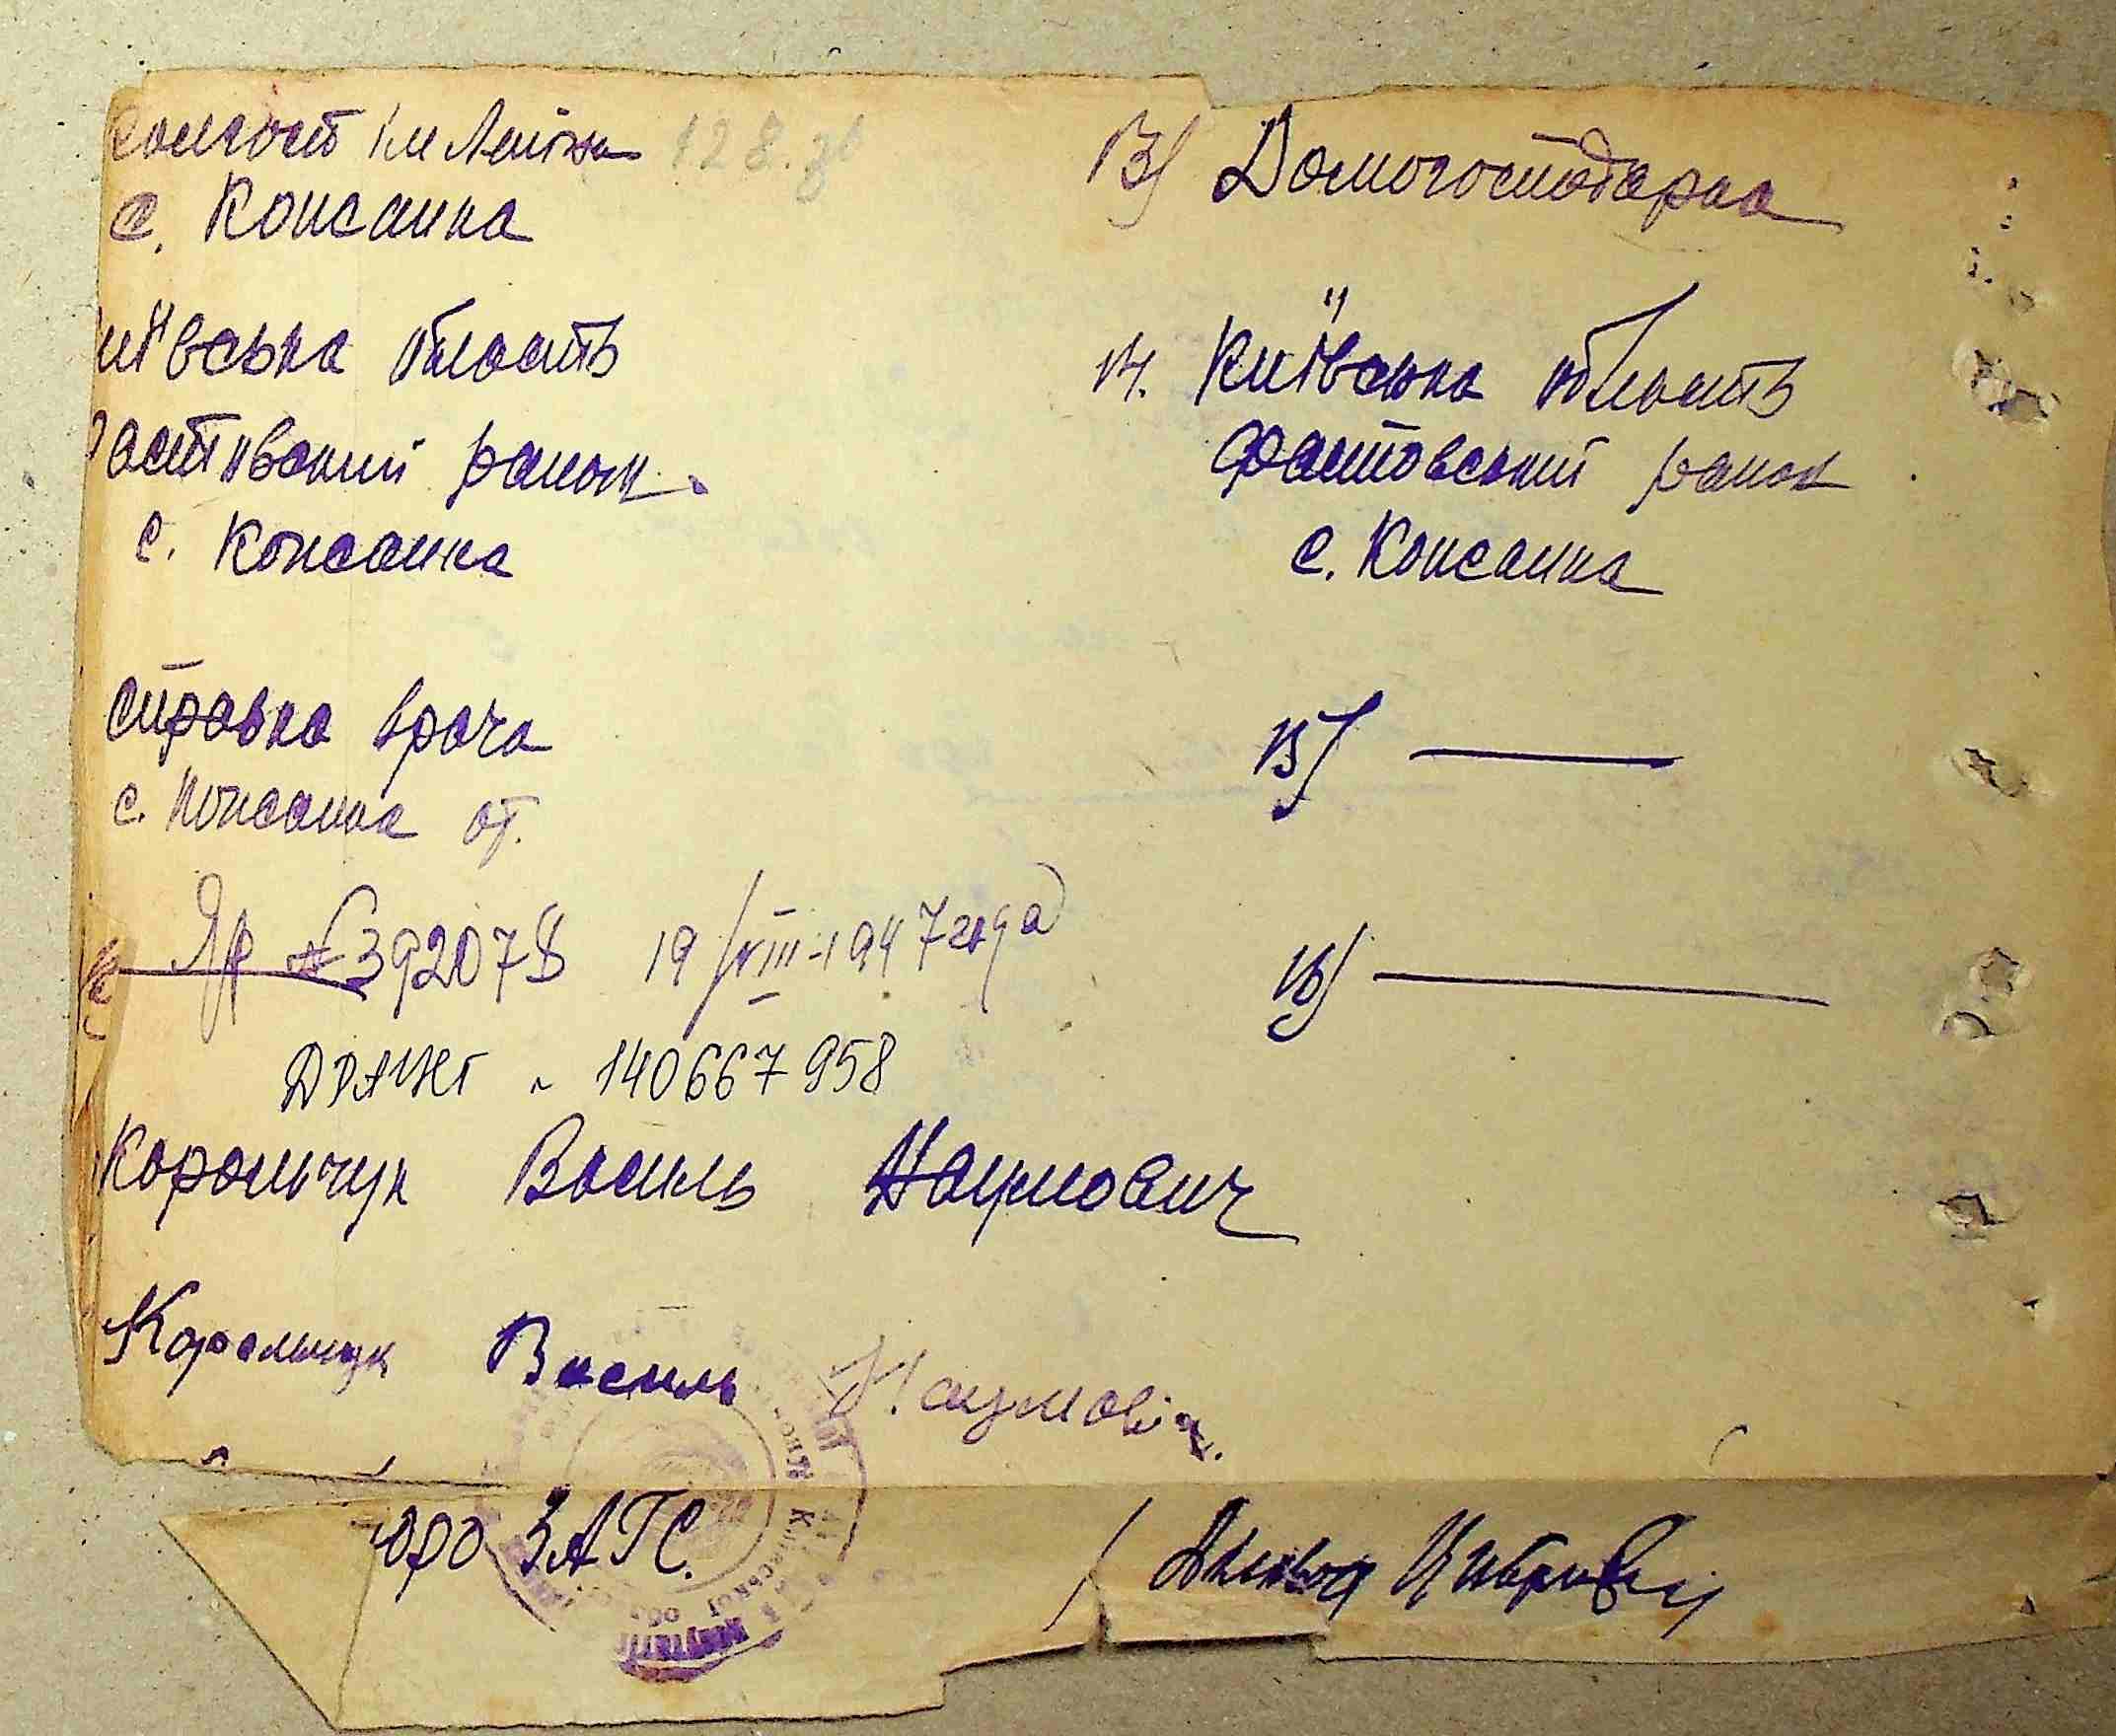 колгосп ім Леніна 128. зв
с. Кожанка
иївська область
растівський район.
с. Кожанка
справка врача
с. Кожанка от.
ЯР № 392078 19/VIII-1947 года
140667958
Корольчук Василь Наумович
Корольчук Василь Наумович.
юро ЗАГС.
13) Домогосподарка
14. Київська область
Фастовський район
с. Кожанка
15) —
16) —